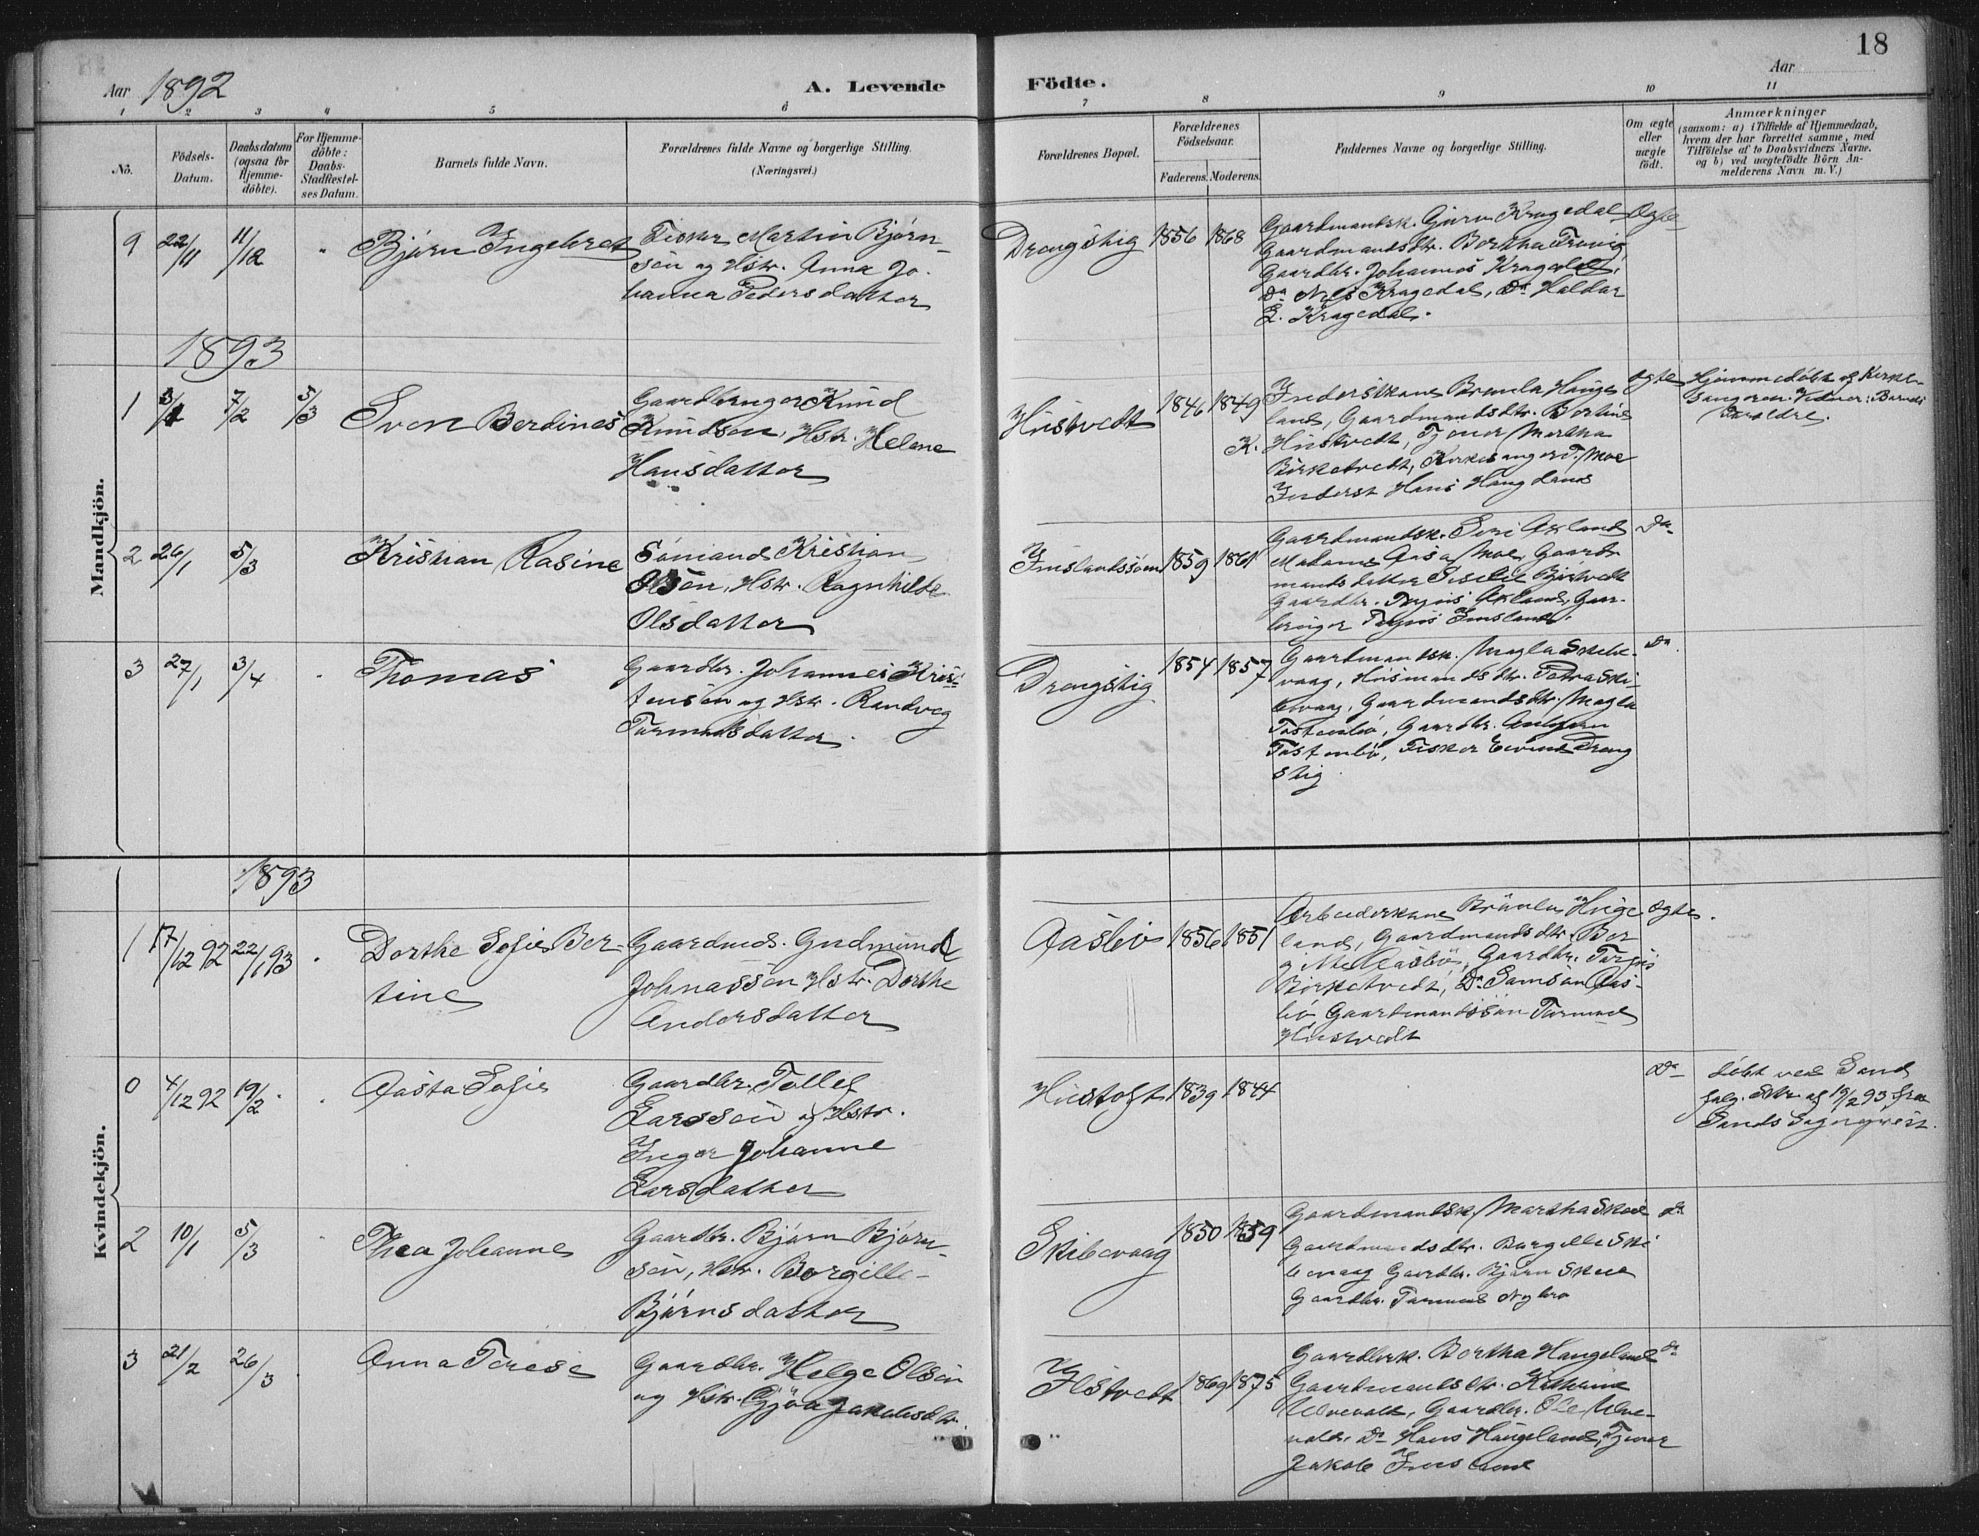 18
Aar 1892
A. Levende
Födte.
Aar
1 2 3 4 5 6 7 8 9 10 11
No.
Födsels-
Datum.
Daabsdatum
(ogsaa for
hjemme-
döbte).
For Hjemme-
döbte:
Daabs-
Stadfæstel-
ses Datum.
Barnets fulde Navn.
Forældrenes fulde Navne og borgerlige Stilling.
(Næringsvei.)
Forældrenes Bopæl.
Forældrenes
Födselsaar.
Faderens. Moderens.
Faddernes Navne og borgerlige Stilling.
Om ægte
eller
uægte
födt.
Anmærkninger
(saasom: a) i Tilfælde af Hjemmedaab,
hvem der har forrettet samme, med
Tilföielse af to Daabsvidners Navne.
og b) ved uægtefödte Börn An-
melderens Navn m. V.)
Mandkjön.
9 22/11 11/12 " Bjørn Ingebret
Fisker Martin Bjørn-
sön og Hstr. Anna Jo-
hanna Pedersdatter
Drengstig 1856 1868
Gaardmandsk. Gjørn Kragedal
Gaardmandsdtr. Bertha
Gaardbr. Johannes Kragedal,
Do Nils Kragedal, Do Haldor
L. Kragedal.
1893
1 7/2 5/3 Sven Berdines
Gaardbruger Knud
Knudsen, Hstr. Helene
Hansdatter
Hustvedt 1846 1849
Inderstkone
land, Gaardmandsdtr. Berline
K. Hustvedt, Tjener Martha
Birketvedt, Kirkesanger T. Moe
Inderst Hans Haugeland
ægte
Hjemmedöbt af Kirke-
sangeren. Vidner: Barnets
Forældre.
2 26/1 5/3 Kristian Rasine
Sömand Kristian
Olsön, Hstr. Ragnhilde
Olsdatter
1859 1861
Gaardmandsk. Siri Oxland
Madame Aasa Moe, Gaard-
mandsdatter
Gaardbr. Oxland, Gaar-
bruger
Do
3 27/1 3/4 " Thomas
Gaardbr. Johannes Kris-
tensön og Hstr. Randveg
Tormodsdatter.
Drengstig 1854 1857
Gaardmandsk. Magla Skibe-
vaag, Husmandsdtr. Petra Ski-
bevaag, Gaardmandsdtr. Magla
Tostenbö, Gaardbr.
Tostenbö, Fisker Eivind Dreng
stig.
Do
Kvindekjön.
1893
1 17/12 92 22/1 93 " Dorthe Sofie Ber-
tine
Gaardmd. Gudmund
Johnassön Hstr. Dorthe
Andersdatter
Aaslev 1856 1851
Arbeiderkone
land, Gaardmandsdtr. Ber
Gaardbr. Torjus
Birketvedt, Do Samson Aas-
Gaardmandssön Tormod
Hustvedt
ægte.
0 4/12 92 19/2 " Aasta Sofie
Gaardbr. Tollef
Larssön og Hstr.
Inger Johanne
Larsdatter
Hustoft 1839 1844
Do
döbt ved Sand
fölg. Skr. af 19/2 93 fra
Sands Sognepræst.
2 10/1 5/3 " Thea Johanne
Gaardbr. Bjørn Bjørn-
sön, Hstr. Borgille
Bjørnsdatter
Skibevaag 1850 1859
Gaardmandsk. Martha Skeie
Gaardmandsdtr. Borgille Ski
bevaag Gaardbr. Bjørn Skeie
Gaardbr. Tormod Nybro
Do
3 21/2 26/3 " Anna Terese
Gaardbr. Helge Olsön
og Hstr. Gjöa Jakobsdtr.
1869 1875
Gaardbrk. Bertha Haugeland
Gaardmandsdtr.
Ulvevold, Gaardbr. Ole Ulve-
vold, Do Hans Haugeland, Tjener
Jakob
Do